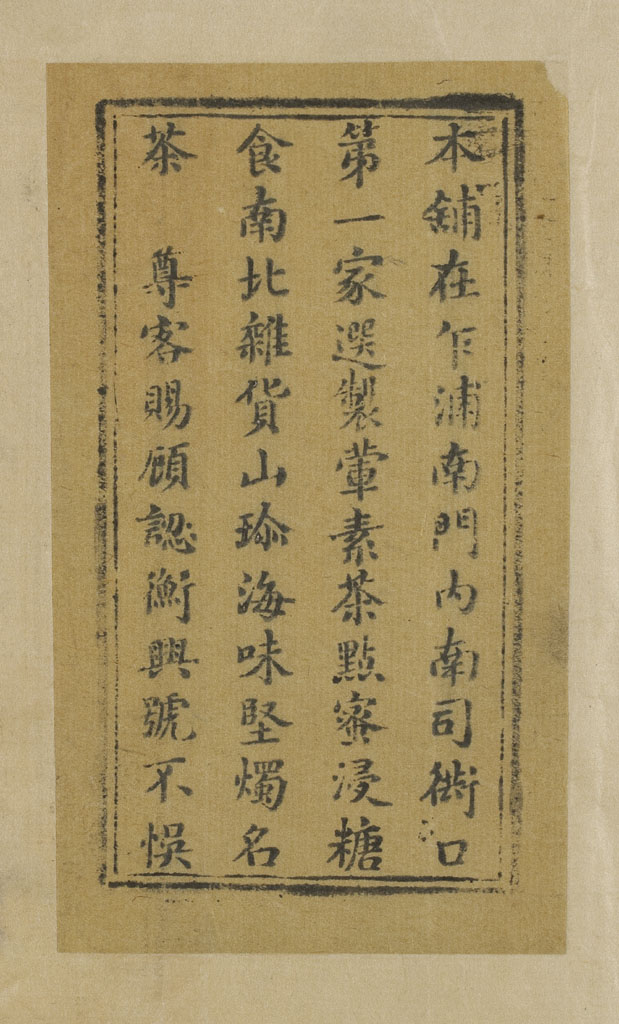 本舖在乍浦南門內南司衖口
第一家選製葷素茶點蜜浸糖
食南北雜貨山珎海味堅燭名
茶　尊客賜顧認衡興號不悮